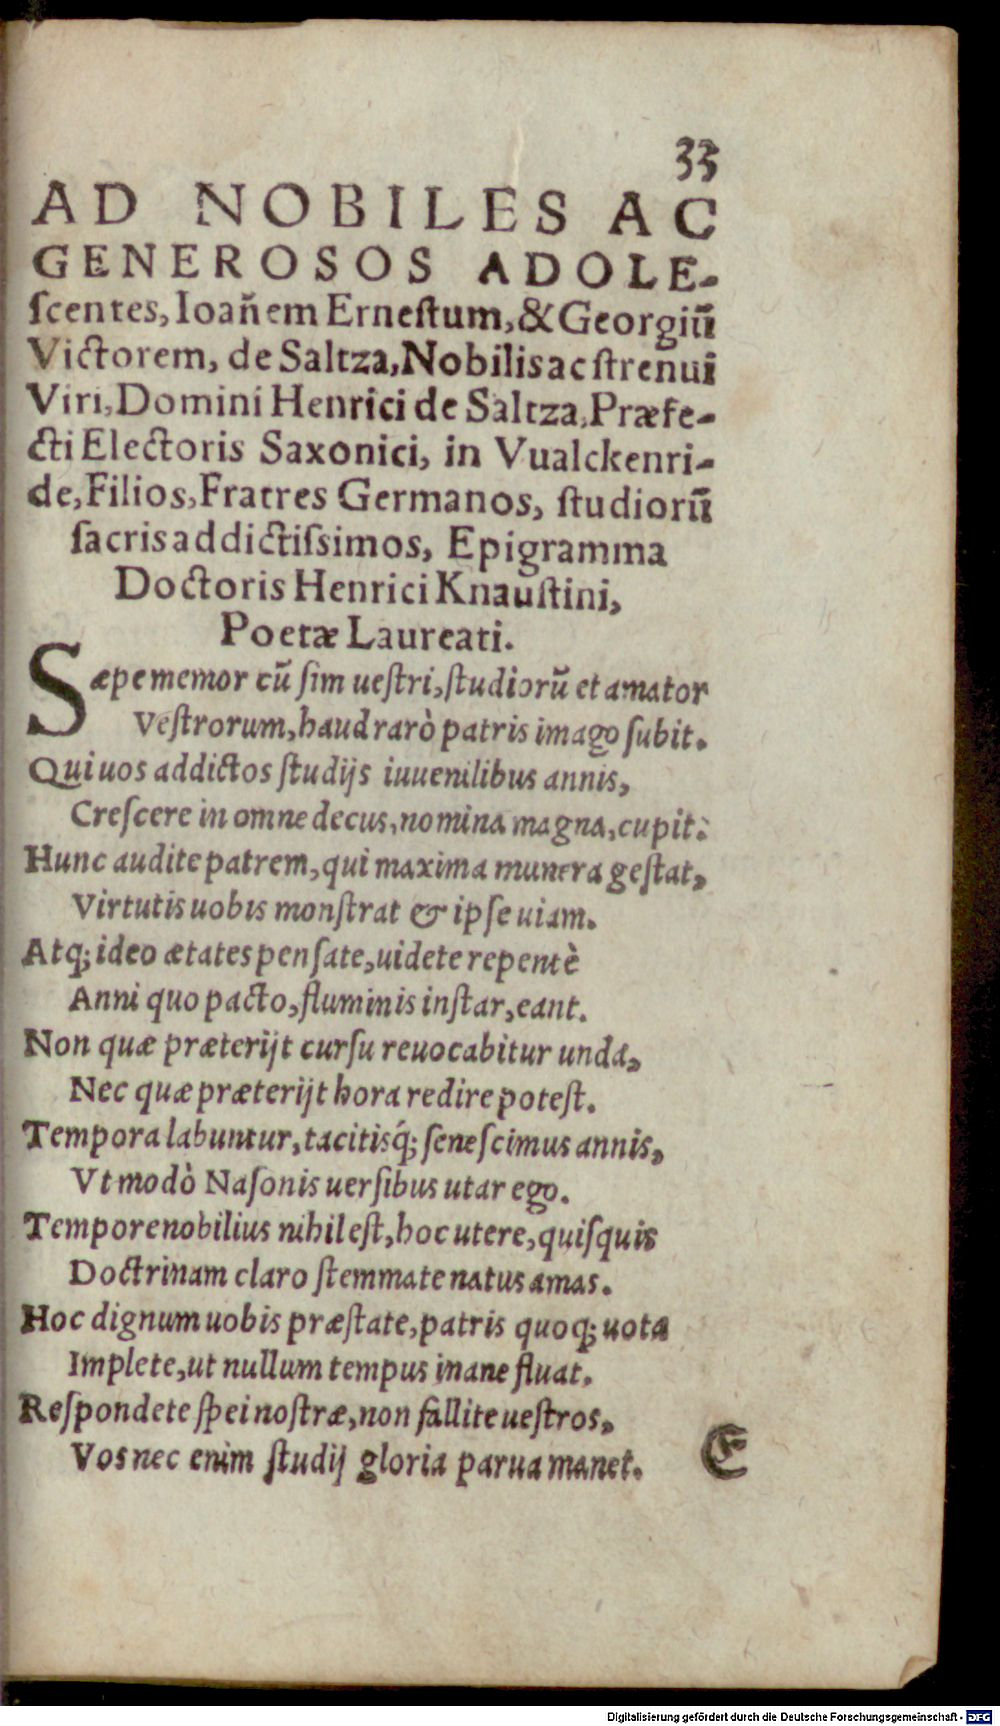 33
AD NOBILES AC
GENEROSOS ADOLE-
ſcentes, Ioañem Erneſtum, & Georgiũ
Victorem, de Saltza, Nobilis ac ſtrenui
Viri, Domini Henrici de Saltza, Præfe-
cti Electoris Saxonici, in Vualckenri-
de, Filios, Fratres Germanos, ſtudiorũ
ſacris addictiſsimos, Epigramma
Doctoris Henrici Knauſtini,
Poetæ Laureati.
Sæpe memor cũ ſim ueſtri, ſtudiorũ et amator
Veſtrorum, haud rarò patris imago ſubit.
Qui uos addictos ſtudijs iuuenilibus annis,
Creſcere in omne decus, nomina magna, cupit:
Hunc audite patrem, qui maxima munera geſtat,
Virtutis uobis monſtrat & ipſe uiam.
Atq; ideo ætates penſate, uidete repentè
Anni quo pacto, fluminis inſtar, eant.
Non quæ præterijt curſu reuocabitur unda,
Nec quæ præterijt hora redire poteſt.
Tempora labuntur, tacitisq́; ſeneſcimus annis,
Vt modò Naſonis uerſibus utar ego.
Tempore nobilius nihil eſt, hoc utere, quiſquis
Doctrinam claro ſtemmate natus amas.
Hoc dignum uobis præſtate, patris quoq; uota
Implete, ut nullum tempus inane fluat.
Reſpondete ſpei noſtræ, non fallite ueſtros,
Vos nec enim ſtudij gloria parua manet.
E
Digitalisierung gefördert durch die Deutsche Forschungsgemeinschaft - DFG